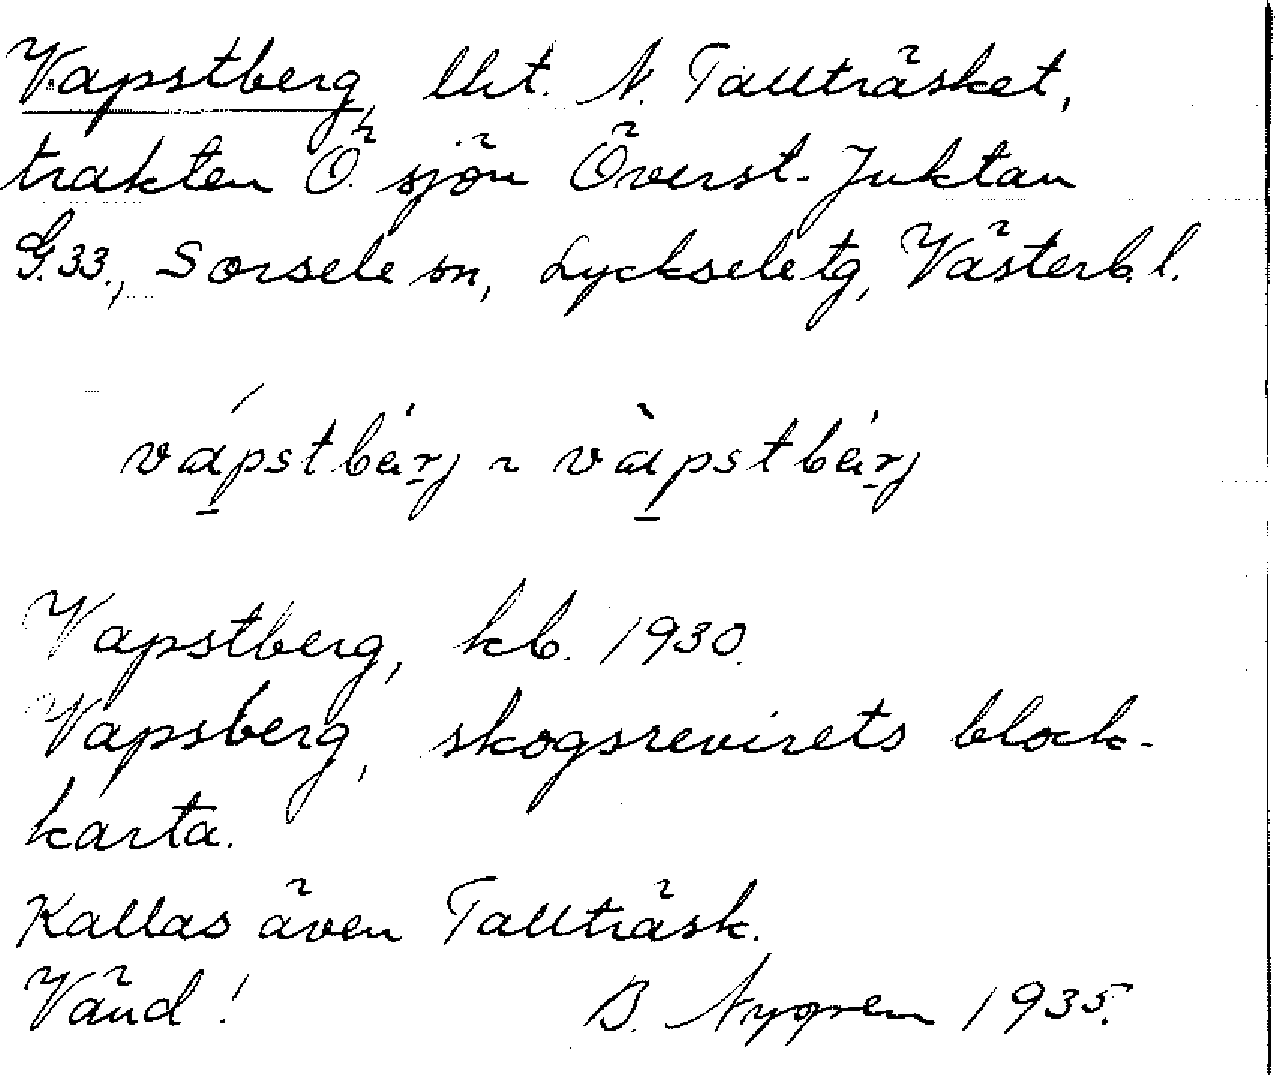 Vapstberg, lht. N. Tallträsket,
trakten Ö. sjön Överst-Juktan
G.33., Sorsele sn, Lycksele tg, Västerb. l.
vápstbärj ~ vàpstbärj
Vapstberg, kb. 1930.
Vapsberg, skogsrevirets block-
karta.
Kallas även Tallträsk.
Vänd! B. Nygren 1935.